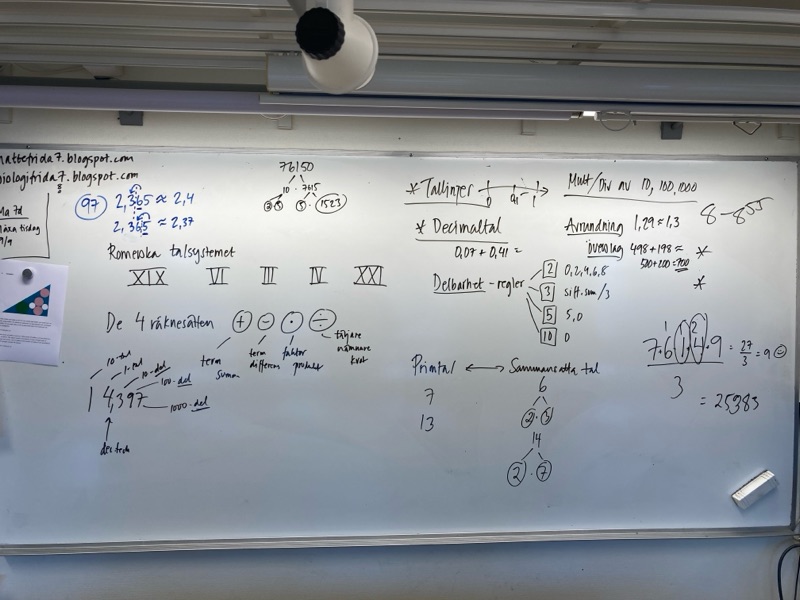 matbefrida7.blogspot.com
biologifrida7.blogspot.com
Ma 7d
Läxa tisdag
9/9
97 2,365 ≈ 2,4
2,365 ≈ 2,37
76150
10 · 7615
2 5 5 · 1523
Romerska talsystemet
XIX VI III IV XXI
De 4 räknesätten + − · ÷
term
summa
term
differens
faktor
produkt
täljare
nämnare
kvot
10-tal
1-tal
10-del
100-del
1000-del
14,397
* Tallinjer
0 1
* Decimaltal
0,07 + 0,41 =
Mult/Div av 10, 100, 1000
Avrundning 1,29 ≈ 1,3
överslag 498+198 ≈
500+200=700
*
*
Delbarhet-regler
2 0,2,4,6,8
3 siff.sum/3
5 5,0
10 0
Primtal ⟷ Sammansatta tal
7
13
6
2 · 3
14
2 · 7
7.6 1,4.9 = 27/3 = 9
3
= 25383